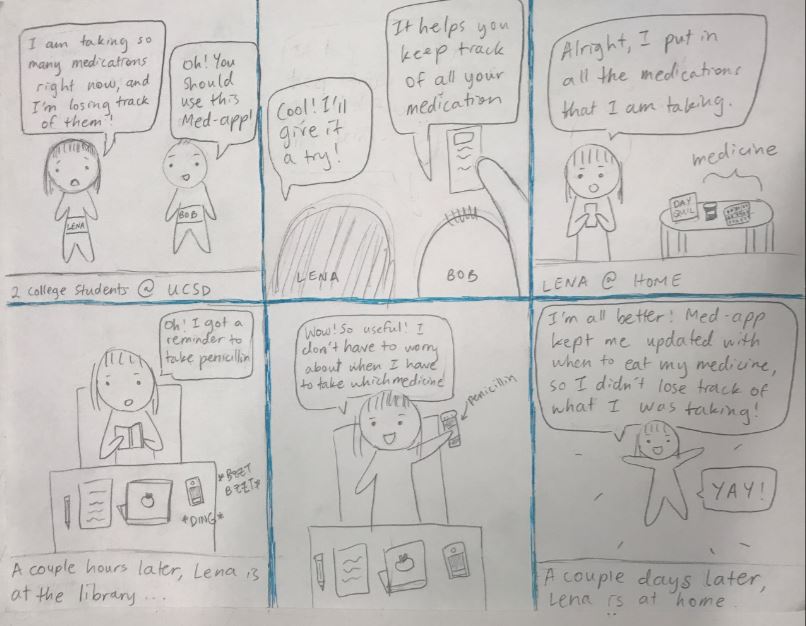 I am taking so
many medications
right now, and
I'm losing track
of them!
Oh! You
should
use this
Med-app!
LENA
BOB
2 college students @ UCSD
It helps you
keep track
of all your
medication
Cool! I'll
give it
a try!
LENA
BOB
Alright, I put in
all the medications
that I am taking.
medicine
DAY
QUIL
LENA @ HOME
Oh! I got a
reminder to
take penicillin
*BZZT
BZZT*
*DING*
A couple hours later, Lena is
at the library ...
Wow! So useful! I
don't have to worry
about when I have
to take which medicine
penicillin
I'm all better! Med-app
kept me updated with
when to eat my medicine,
so I didn't lose track of
what I was taking!
YAY!
A couple days later,
Lena is at home.